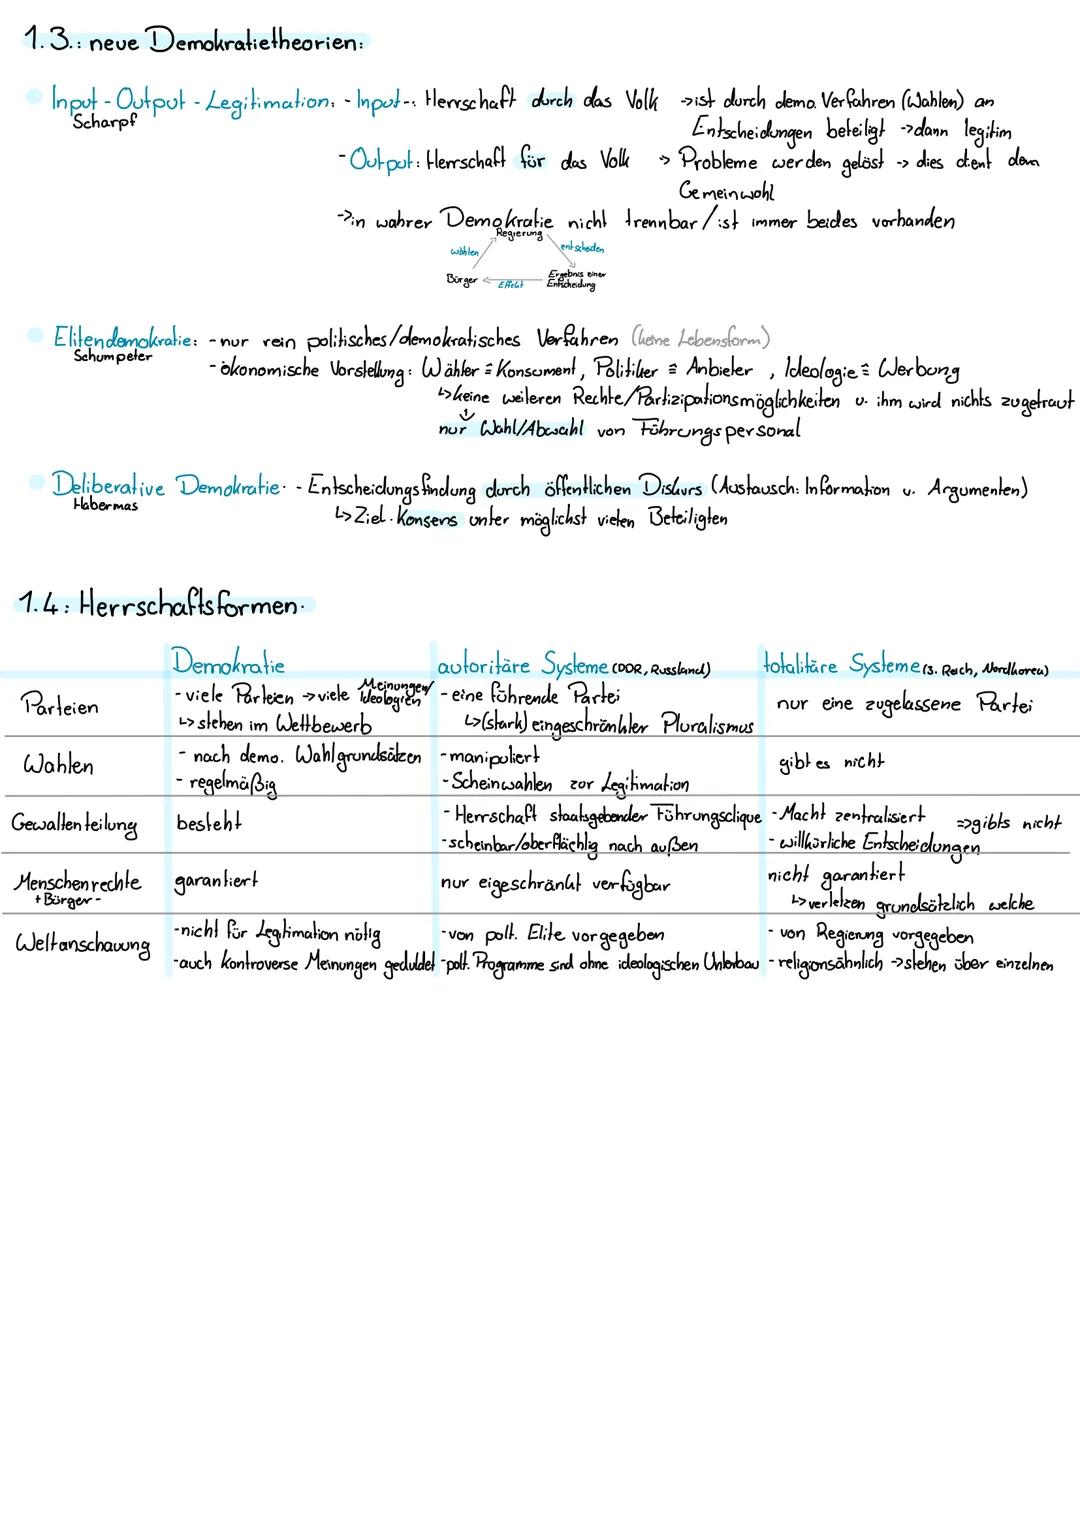 1.3.: neue Demokratietheorien:
Input-Output-Legitimation: - Input-: Herrschaft durch das Volk ->ist durch demo. Verfahren (Wahlen) an
Scharpf
Entscheidungen beteiligt -> dann legitim
- Output: Herrschaft für das Volk -> Probleme werden gelöst -> dies dient dem
Gemeinwohl
->in wahrer Demokratie nicht trennbar/ist immer beides vorhanden
Regierung
wählen
entscheiden
Bürger
Effekt
Ergebnis einer
Entscheidung
Elitendemokratie: - nur rein politisches/demokratisches Verfahren (keine Lebensform)
Schumpeter
- ökonomische Vorstellung: Wähler ≙ Konsument, Politiker ≙ Anbieter, Ideologie ≙ Werbung
↳ keine weiteren Rechte/Partizipationsmöglichkeiten u. ihm wird nichts zugetraut
nur Wahl/Abwahl von Führungspersonal
Deliberative Demokratie: - Entscheidungsfindung durch öffentlichen Diskurs (Austausch: Information u. Argumenten)
Habermas
↳ Ziel: Konsens unter möglichst vielen Beteiligten
1.4: Herrschaftsformen:
Demokratie
autoritäre Systeme (DDR, Russland)
totalitäre Systeme (3. Reich, Nordkorea)
Parteien
- viele Parteien -> viele Meinungen/Ideologien
↳ stehen im Wettbewerb
- eine führende Partei
↳ (stark) eingeschränkter Pluralismus
nur eine zugelassene Partei
Wahlen
- nach demo. Wahlgrundsätzen
- regelmäßig
- manipuliert
- Scheinwahlen zur Legitimation
gibt es nicht
Gewaltenteilung
besteht
- Herrschaft staatsgebender Führungsclique
- scheinbar/oberflächlig nach außen
- Macht zentralisiert => gibts nicht
- willkürliche Entscheidungen
Menschenrechte
+ Bürger-
garantiert
nur eigeschränkt verfügbar
nicht garantiert
↳ verletzen grundsätzlich welche
Weltanschauung
- nicht für Legitimation nötig
- auch kontroverse Meinungen geduldet
- von polt. Elite vorgegeben
- polt. Programme sind ohne ideologischen Unterbau
- von Regierung vorgegeben
- religionsähnlich -> stehen über einzelnen